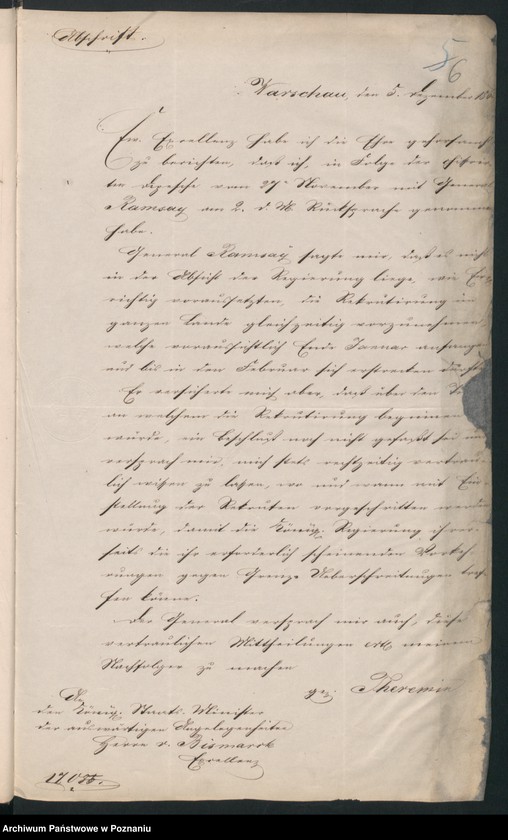 Abschrift.
5
6
Warschau, den 5. Dezember
Ew. Excellenz habe ich die Ehre gehorsamst
zu berichten, daß ich, in Folge der chiffrir-
ten Depesche vom 27n November mit General
Ramsay am 2. d. M. Rücksprache genommen
habe.
General Ramsay sagte mir, daß es nicht
in der Absicht der Regierung liege, wie Ew.
richtig voraussetzten, die Rekrutirung im
ganzen Lande gleichzeitig vorzunehmen,
welche voraussichtlich Ende Januar anfangen
und bis in den Februar sich erstrecken dürfte.
Er versicherte mich aber, daß über den
an welchem die Rekrutirung beginnen
würde, ein Beschluß noch nicht gefaßt sei
versprach mir, mich stets rechtzeitig vertrau-
lich wissen zu lassen, wo und wann mit Ein-
stellung der Rekruten vorgeschritten werden
würde, damit die Königl. Regierung ihrer-
seits die ihr erforderlich scheinenden Vorkeh-
rungen gegen Grenz-Ueberschreitungen tref-
fen könne.
Der General versprach mir auch, diese
vertraulichen Mittheilungen meinem
Nachfolger zu machen
gez. Theremin
An
den Königl. Staats-Minister
der auswärtigen Angelegenheiten
Herrn v. Bismarck
Excellenz
Archiwum Państwowe w Poznaniu